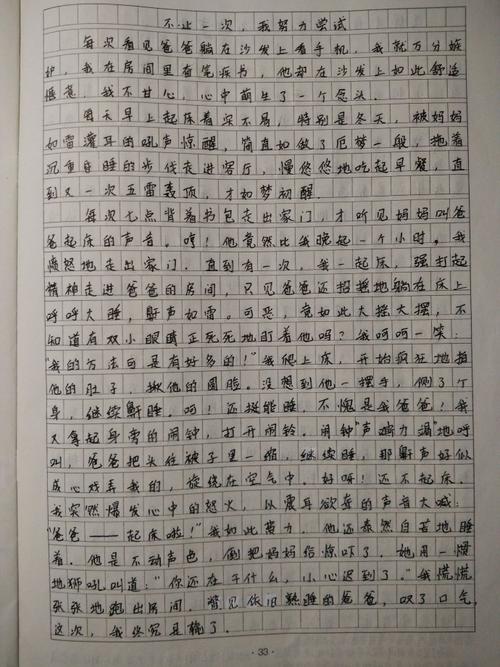 不止一次，我努力尝试
每次看见爸爸躺在沙发上看手机，我就万分嫉
妒，我在房间里奋笔疾书，他却在沙发上如此舒适
惬意，我不甘心，心中萌生了一个念头.
每天早上起床着实不易，特别是冬天，被妈妈
如雷灌耳的吼声惊醒，简直如做了厄梦一般，拖着
沉重昏睡的步伐走进客厅，慢悠悠地吃起早餐，直
到又一次五雷轰顶，才如梦初醒.
每次七点背着书包走出家门，才听见妈妈叫爸
爸起床的声音。哼！他竟然比我晚起一个小时。我
愤怒地走出家门.直到有一次，我一起床，强打起
精神走进爸爸的房间，只见爸爸还招摇地躺在床上
呼呼大睡，鼾声如雷。可恶，竟如此大摇大摆，不
知道有双小眼睛正死死地盯着他吗？我呵呵一笑：
"我的方法可是有好多的！"我爬上床，开始疯狂地拍
他的肚子，揪他的圆脸。没想到他一摆手，侧了个
身，继续鼾睡。呵！还挺能睡，不愧是我爸爸！我
又拿起身旁的闹钟，打开闹铃。闹钟"声嘶力竭"地呼
叫，爸爸把头往被子里一缩，继续睡，那鼾声好似
成心戏弄我的，旋绕在空气中。好啊！还不起床.
我突然爆发心中的怒火，以震耳欲聋的声音大喊：
"爸爸——起床啦！"我如此努力，他还泰然自若地睡
着。他是不动声色，倒把妈妈给惊吓了。她用一惯
地狮吼叫道："你还在干什么，小心迟到了."我慌慌
张张地跑出房间，瞥见依旧熟睡的爸爸，叹了口气，
这次，我终究是输了.
·33·